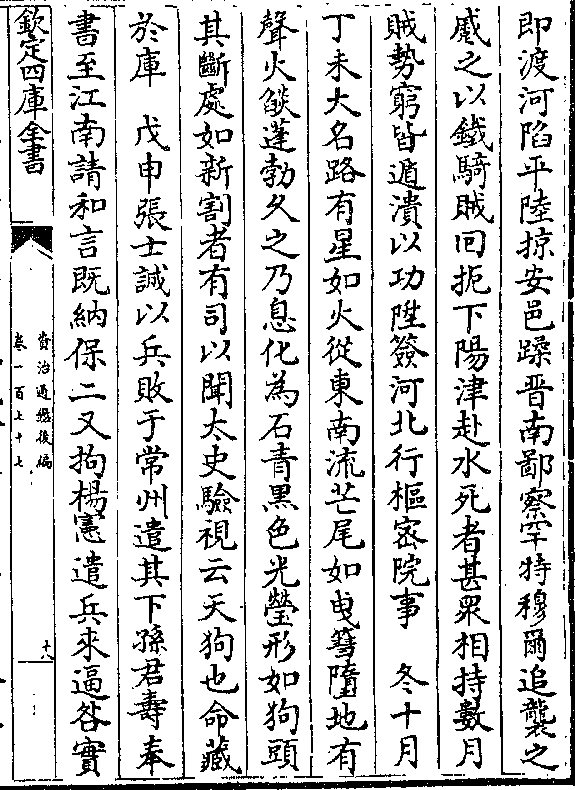 即渡河陷平陸掠安邑蹂晉南鄙察罕特穆爾追襲之
蹙之以鐵騎賊回扼下陽津赴水死者甚衆相持數月
賊勢窮皆遁潰以功陞簽河北行樞密院事　冬十月
丁未大名路有星如火從東南流芒尾如曳篲墮地有
聲火燄蓬勃久之乃息化為石青黑色光瑩形如狗頭
其斷處如新割者有司以聞太史驗視云天狗也命藏
於庫　戊申張士誠以兵敗于常州遣其下孫君壽奉
書至江南請和言既納保二又拘楊憲遣兵來逼咎實
欽定四庫全書
資治通鑑後編
卷一百七十七
十八